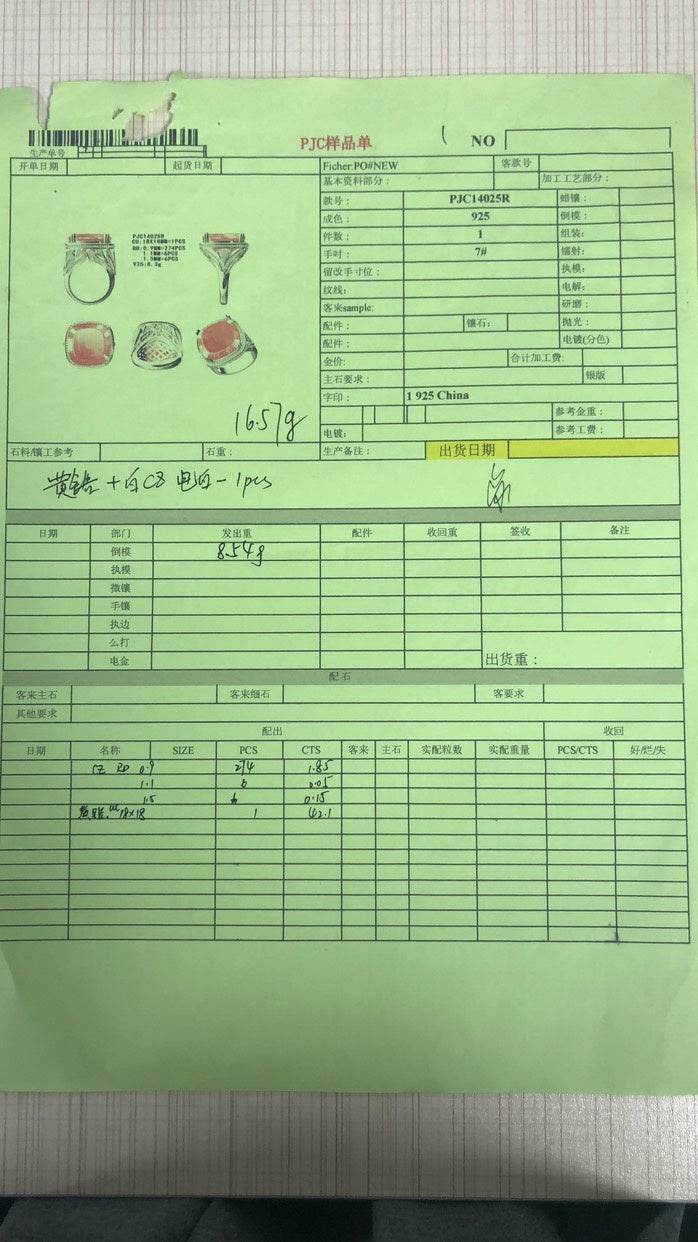 PJC样品单
NO
生产单号
开单日期 起货日期 Ficher:PO#NEW 客款号
基本资料部分： 加工工艺部分：
款号： PJC14025R 蜡镶：
成色： 925 倒模：
件数： 1 组装：
手吋： 7# 镭射：
留改手寸位： 执模：
纹线： 电解：
客来sample: 研磨：
配件： 镶石： 抛光：
配件： 电镀(分色)
金价: 合计加工费:
主石要求： 银版
字印： 1 925 China
参考金重：
电镀： 参考工费：
PJC14025R
CU:18X18MM=1PCS
RD:0.9MM=274PCS
1.1MM=6PCS
1.5MM=6PCS
925:8.3g
16.57g
石料/镶工参考 石重： 生产备注： 出货日期
黄锆+白CZ 电白-1pcs
日期 部门 发出重 配件 收回重 签收 备注
倒模 8.54g
执模
微镶
手镶
执边
么打
电金 出货重：
配石
客来主石 客来细石 客要求
其他要求
配出 收回
日期 名称 SIZE PCS CTS 客来 主石 实配粒数 实配重量 PCS/CTS 好/烂/失
CZ RD 0.9 274 1.85
1.1 6 0.05
1.5 6 0.15
黄锆 CU 18×18 1 42.1